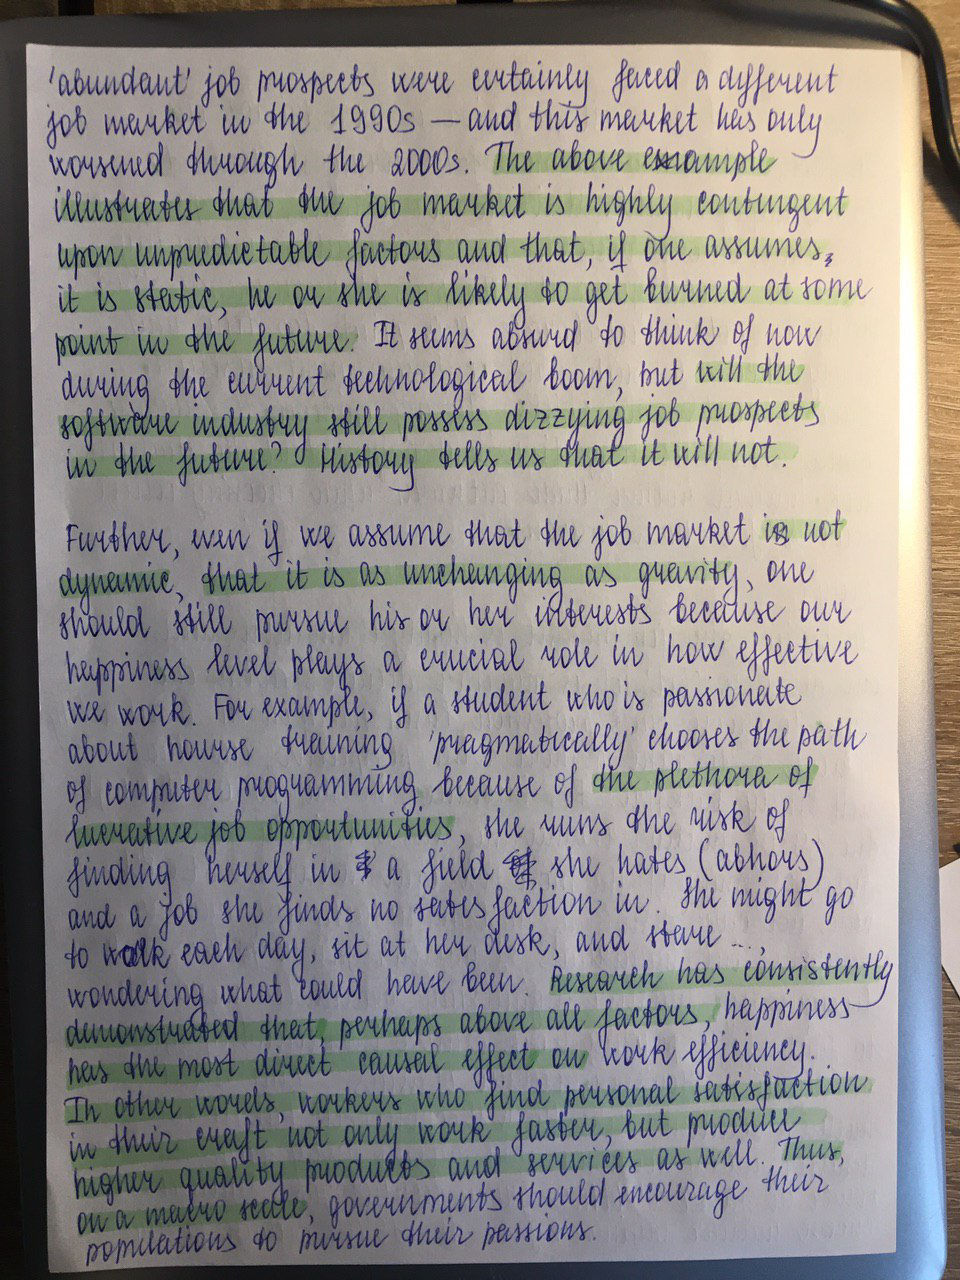 'abundant' job prospects were certainly faced a different
job market in the 1990s — and this market has only
worsened through the 2000s. The above example
illustrates that the job market is highly contingent
upon unpredictable factors and that, if one assumes,
it is static, he or she is likely to get burned at some
point in the future. It seems absurd to think of now
during the current technological boom, but will the
software industry still possess dizzying job prospects
in the future? History tells us that it will not.
Further, even if we assume that the job market is not
dynamic, that it is as unchanging as gravity, one
should still pursue his or her interests because our
happiness level plays a crucial role in how effective
we work. For example, if a student who is passionate
about hourse training 'pragmatically' chooses the path
of computer programming because of the plethora of
lucrative job opportunities, she runs the risk of
finding herself in a field she hates (abhors)
and a job she finds no satisfaction in. She might go
to work each day, sit at her desk, and stare ...,
wondering what could have been. Research has consistently
demonstrated that, perhaps above all factors, happiness
has the most direct causal effect on work efficiency.
In other words, workers who find personal satisfaction
in their craft not only work faster, but produce
higher quality products and services as well. Thus,
on a macro scale, governments should encourage their
populations to pursue their passions.